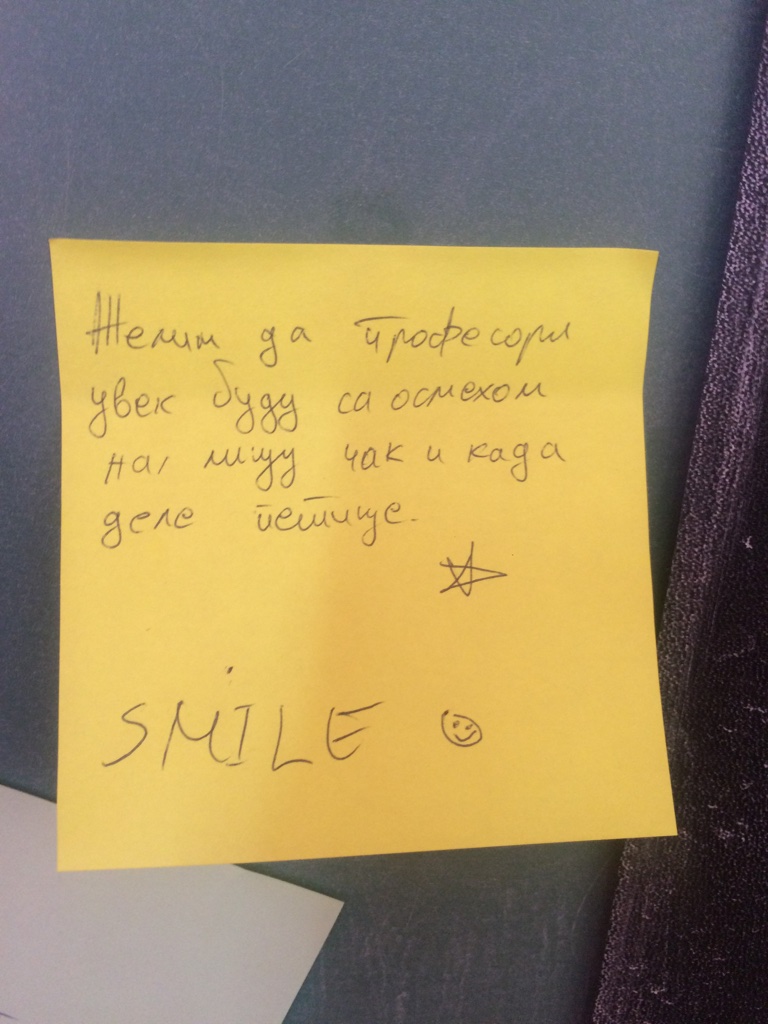 Желим да професори
увек буду са осмехом
на лицу чак и када
деле петице.
SMILE